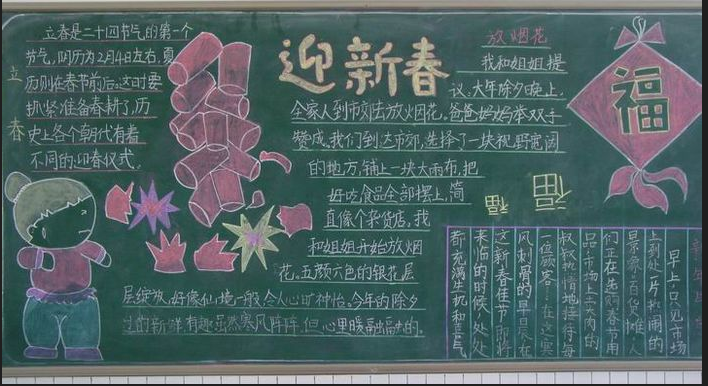 立春
立春是二十四节气的第一个
节气,阴历为2月4日左右,夏
历则在春节前后。这时要
抓紧准备春耕了,历
史上各个朝代有着
不同的迎春仪式。
迎新春
放烟花
我和姐姐提
议,大年除夕晚上,
全家人到市郊去放烟花。爸爸妈妈举双手
赞成。我们到达市郊,选择了一块视野宽阔
的地方,铺上一块大雨布,把
好吃食品全部摆上,简
直像个杂货店,我
和姐姐开始放烟
花。五颜六色的银花层
层绽放,好像仙境一般,令人心旷神怡。今年的除夕
过的新鲜,有趣,虽然寒风阵阵,但心里暖融融的。
福
福
福
早上,只见市场
上到处一片和闹的
景象,百货摊,人
们正在选购春节用
品,市场上卖肉的
叔叔热情地招待每
一位顾客,在这寒
风刺骨的早晨,在
这新春佳节即将
来临的时候,处处
都充满生机和喜气